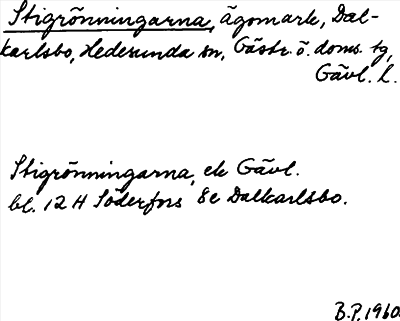 Stigrönningarna, ägomark, Dal-
karlsbo, Hedesunda sn, Gästr. ö. doms. tg,
Gävl. l.
Stigrönningarna, ek Gävl.
bl. 12 H Söderfors 8e Dalkarlsbo.
B.P. 1960.